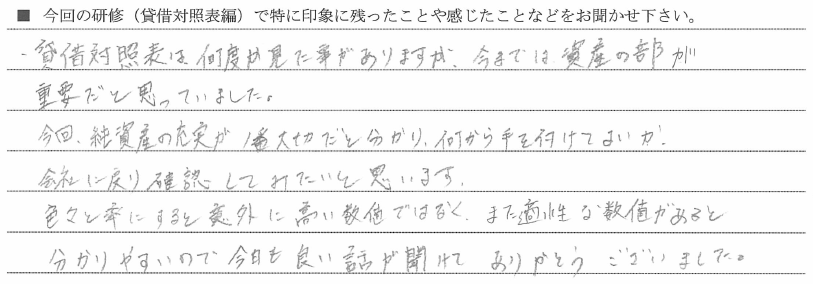 ■ 今回の研修（貸借対照表編）で特に印象に残ったことや感じたことなどをお聞かせ下さい。
・貸借対照表は何度か見た事がありますが、今までは資産の部が
重要だと思っていました。
今回、純資産の充実が1番大切だと分かり、何から手を付けてよいか、
会社に戻り確認してみたいと思います。
色々と率にすると意外に高い数値ではなく、また適性な数値があると
分かりやすいので今日も良い話が聞けてありがとうございました。